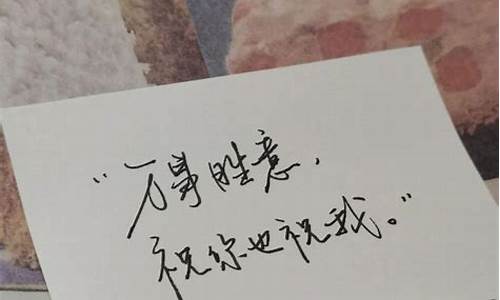 “万事胜意,
祝你也祝我。”